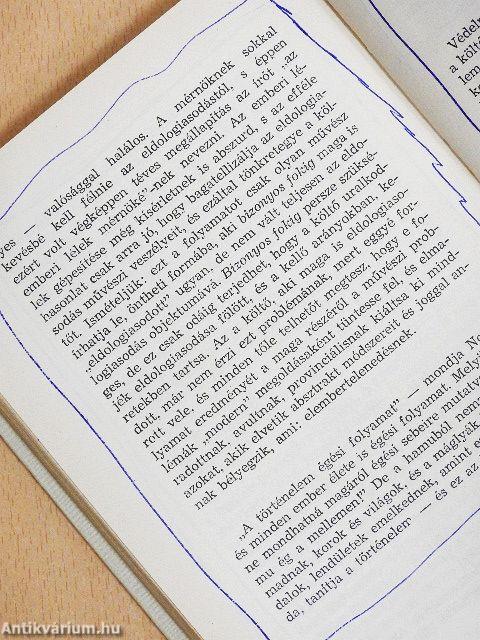 yes — valósággal halálos. A mérnöknek sokkal
kevésbé kell félnie az eldologiasodástól, s éppen
ezért volt végképpen téves megállapítás az írót „az
emberi lélek mérnöké”-nek nevezni. Az emberi lé-
lek gépesítése még kísérletnek is abszurd, s az efféle
hasonlat csak arra jó, hogy bagatellizálja az eldologia-
sodás művészi veszélyeit, és ezáltal tönkretegye a köl-
tőt. Ismételjük: ezt a folyamatot csak olyan művész
írhatja le, öntheti formába, aki bizonyos fokig maga is
„eldologiasodott” ugyan, de nem vált teljesen az eldo-
logiasodás objektumává. Bizonyos fokig persze szüksé-
ges, de ez csak odáig terjedhet, hogy a költő uralkod-
jék eldologiasodása fölött, és a kellő arányokban, ke-
retekben tartsa. Az a költő, aki maga is eldologiaso-
dott, már nem érzi ezt problémának, mert eggyé for-
rott vele, és minden tőle telhetőt megtesz, hogy a fo-
lyamat eredményét a maga részéről a művészi prob-
lémák „modern” megoldásaként tüntesse fel, és elma-
radottnak, avultnak, provinciálisnak kiáltsa ki mind-
azokat, akik elvetik absztrakt módszereit és joggal an-
nak bélyegzik, ami: elembertelenedésnek.
„A történelem égési folyamat” — mondja No
és minden ember élete is égési folyamat. Melyi
ne mondhatná magáról égési sebeire mutatv
mu ég a mellemen!” De a hamuból nemz
madnak, korok és világok, és a máglyák
dalok, lendületek emelkednek, amint e
da, tanítja a történelem — és ez az
Védel
a költő
lem
ke
Antikvárium.hu